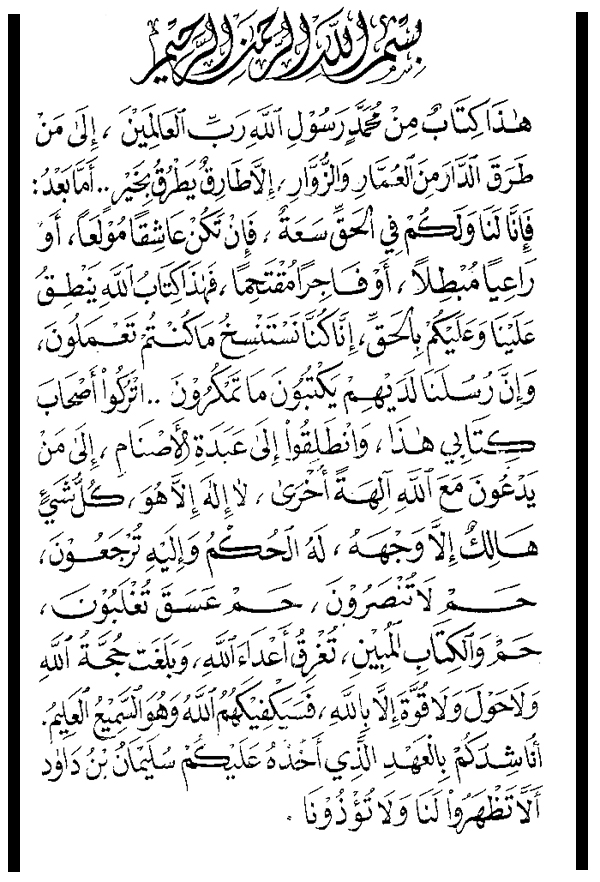 بِسْمِ اللَّهِ الرَّحْمَنِ الرَّحِيمِ
هٰذَا كِتَابٌ مِنْ مُحَمَّدٍ رَسُوْلِ اللهِ رَبِّ الْعَالَمِيْنَ ، إِلَى مَنْ
طَرَقَ الدَّارَ مِنَ الْعُمَّارِ وَالزُّوَّارِ ، إِلَّا طَارِقٌ يَطْرُقُ بِخَيْرٍ .. أَمَّا بَعْدُ :
فَإِنَّا لَنَا وَلَكُمْ فِي الْحَقِّ سَعَةٌ ، فَإِنْ تَكُنْ عَاشِقًا مُوْلَعاً ، أَوْ
رَاعِياً مُبْطِلاً ، أَوْ فَاجِرًا مُقْتَحِمًا ، فَهٰذَا كِتَابُ اللهِ يَنْطِقُ
عَلَيْنَا وَعَلَيْكُمْ بِالْحَقِّ ، إِنَّا كُنَّا نَسْتَنْسِخُ مَا كُنْتُمْ تَعْمَلُونَ ،
وَإِنَّ رُسُلَنَا لَدَيْهِمْ يَكْتُبُوْنَ مَا تَمْكُرُوْنَ .. اتْرُكُوْا أَصْحَابَ
كِتَابِي هٰذَا ، وَانْطَلِقُوْا إِلَى عَبَدَةِ الْأَصْنَامِ ، إِلَى مَنْ
يَدْعُونَ مَعَ اللهِ آلِهَةً أُخْرَىٰ ، لَا إِلٰهَ إِلَّا هُوَ ، كُلُّ شَيْئٍ
هَالِكٌ إِلَّا وَجْهَهُ ، لَهُ الْحُكْمُ وَإِلَيْهِ تُرْجَعُوْنَ ،
حَمْ لَا تُنْصَرُوْنَ ، حَمْ عَسَقَ تُغْلَبُوْنَ ،
حَمْ وَالْكِتَابِ الْمُبِيْنِ ، تُغْرِقُ أَعْدَاءَ اللهِ ، وَبَلَغَتْ حُجَّةُ اللهِ
وَلَا حَوْلَ وَلَا قُوَّةَ إِلَّا بِاللهِ ، فَسَيَكْفِيْكَهُمُ اللهُ وَهُوَ السَّمِيْعُ الْعَلِيْمُ .
أُنَاشِدَكُمْ بِالْعَهْدِ الَّذِي أَخَذَهُ عَلَيْكُمْ سُلَيْمَانُ بْنُ دَاوُد
أَلَّا تَظْهَرُوْا لَنَا وَلَا تُؤْذُوْنَا .